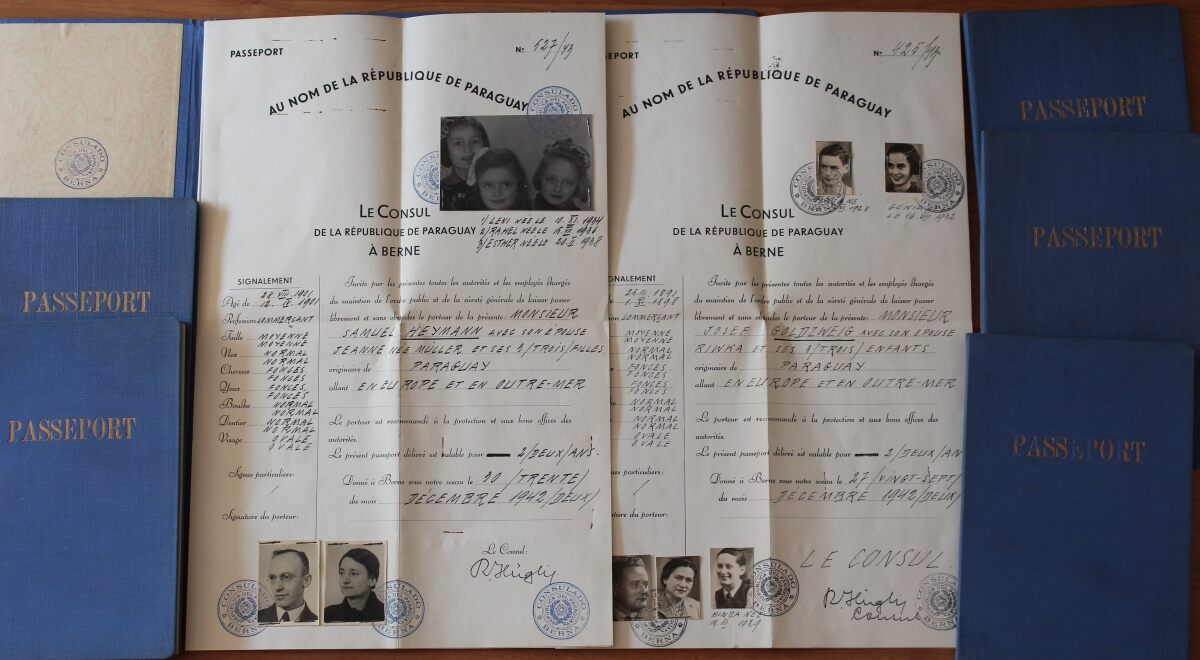 PASSEPORT
Nº 527/43
AU NOM DE LA RÉPUBLIQUE DE PARAGUAY
CONSULADO
BERNA
1) LENI NÉE LE 10. XI. 1934
2) RAHEL NÉE LE 15 1936
3) ESTHER NÉE LE 20. II. 1938
LE CONSUL
DE LA RÉPUBLIQUE DE PARAGUAY
À BERNE
SIGNALEMENT
Agé de 28. VIII. 1901
12. IX. 1901
Profession COMMERÇANT
"
Taille MOYENNE
MOYENNE
Nez NORMAL
NORMAL
Cheveux FONCÉS
FONCÉS
Yeux FONCÉS
FONCÉS
Bouche NORMAL
NORMAL
Dentier NORMAL
NORMAL
Visage OVALE
OVALE
Signes particuliers:
/
Signature du porteur:
Invite par les présentes toutes les autorités et les employés chargés
du maintien de l'ordre public et de la sûreté générale de laisser passer
librement et sans obstacles le porteur de la présente: MONSIEUR
SAMUEL HEYMANN AVEC SON ÉPOUSE
JEANNE NÉE MÜLLER ET SES 3/TROIS/FILLES
originaire de PARAGUAY
allant EN EUROPE ET EN OUTRE-MER
Le porteur est recommandé à la protection et aux bons offices des
autorités.
Le présent passeport délivré est valable pour 2/DEUX/ANS.
Donné à Berne sous notre sceau le 30 /TRENTE/
du mois DÉCEMBRE 1942 /DEUX/
Le Consul:
R Hügly
CONSULADO
BERNA
SEPORT
Nº 425/43
AU NOM DE LA RÉPUBLIQUE DE PARAGUAY
1928
GENIA
LE 16 1932
LE CONSUL
DE LA RÉPUBLIQUE DE PARAGUAY
À BERNE
GNALEMENT
25. III. 1891
1898
on COMMERÇANT
MOYENNE
MOYENNE
NORMAL
NORMAL
FONCÉS
FONCÉS
FONCÉS
FONCÉS
NORMAL
NORMAL
NORMAL
NORMAL
OVALE
OVALE
particuliers:
/
ture du porteur:
Invite par les présentes toutes les autorités et les employés chargés
du maintien de l'ordre public et de la sûreté générale de laisser passer
librement et sans obstacles le porteur de la présente: MONSIEUR
JOSEF GOLDZWEIG AVEC SON ÉPOUSE
RIWKA ET SES 3/TROIS/ ENFANTS
originaire de PARAGUAY
allant EN EUROPE ET EN OUTRE-MER
Le porteur est recommandé à la protection et aux bons offices des
autorités.
Le présent passeport délivré est valable pour 2/DEUX/AN
Donné à Berne sous notre sceau le 27 /VINGT-SEPT/
du mois DÉCEMBRE 1942/DEUX/
LE CONSUL.
R Hügly
Consul
1929
CONSULADO
BERNA
PASSEPORT
PASSEPORT
PASSEPORT
PASSEPORT
PASSEPORT